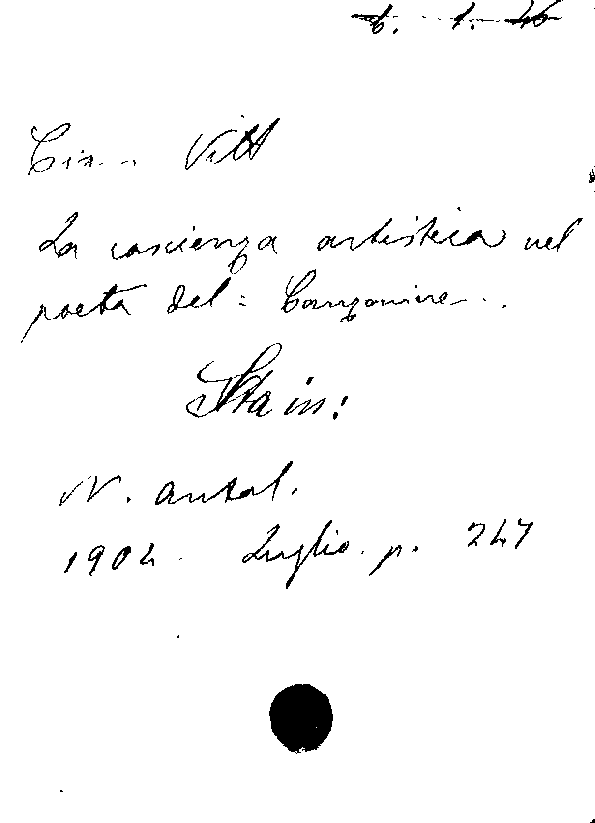 6. 1. 26
Cian Vitt
La coscienza artistica nel
poeta del = Canzoniere..
Sta in:
N. antol.
1904. Luglio. p. 247